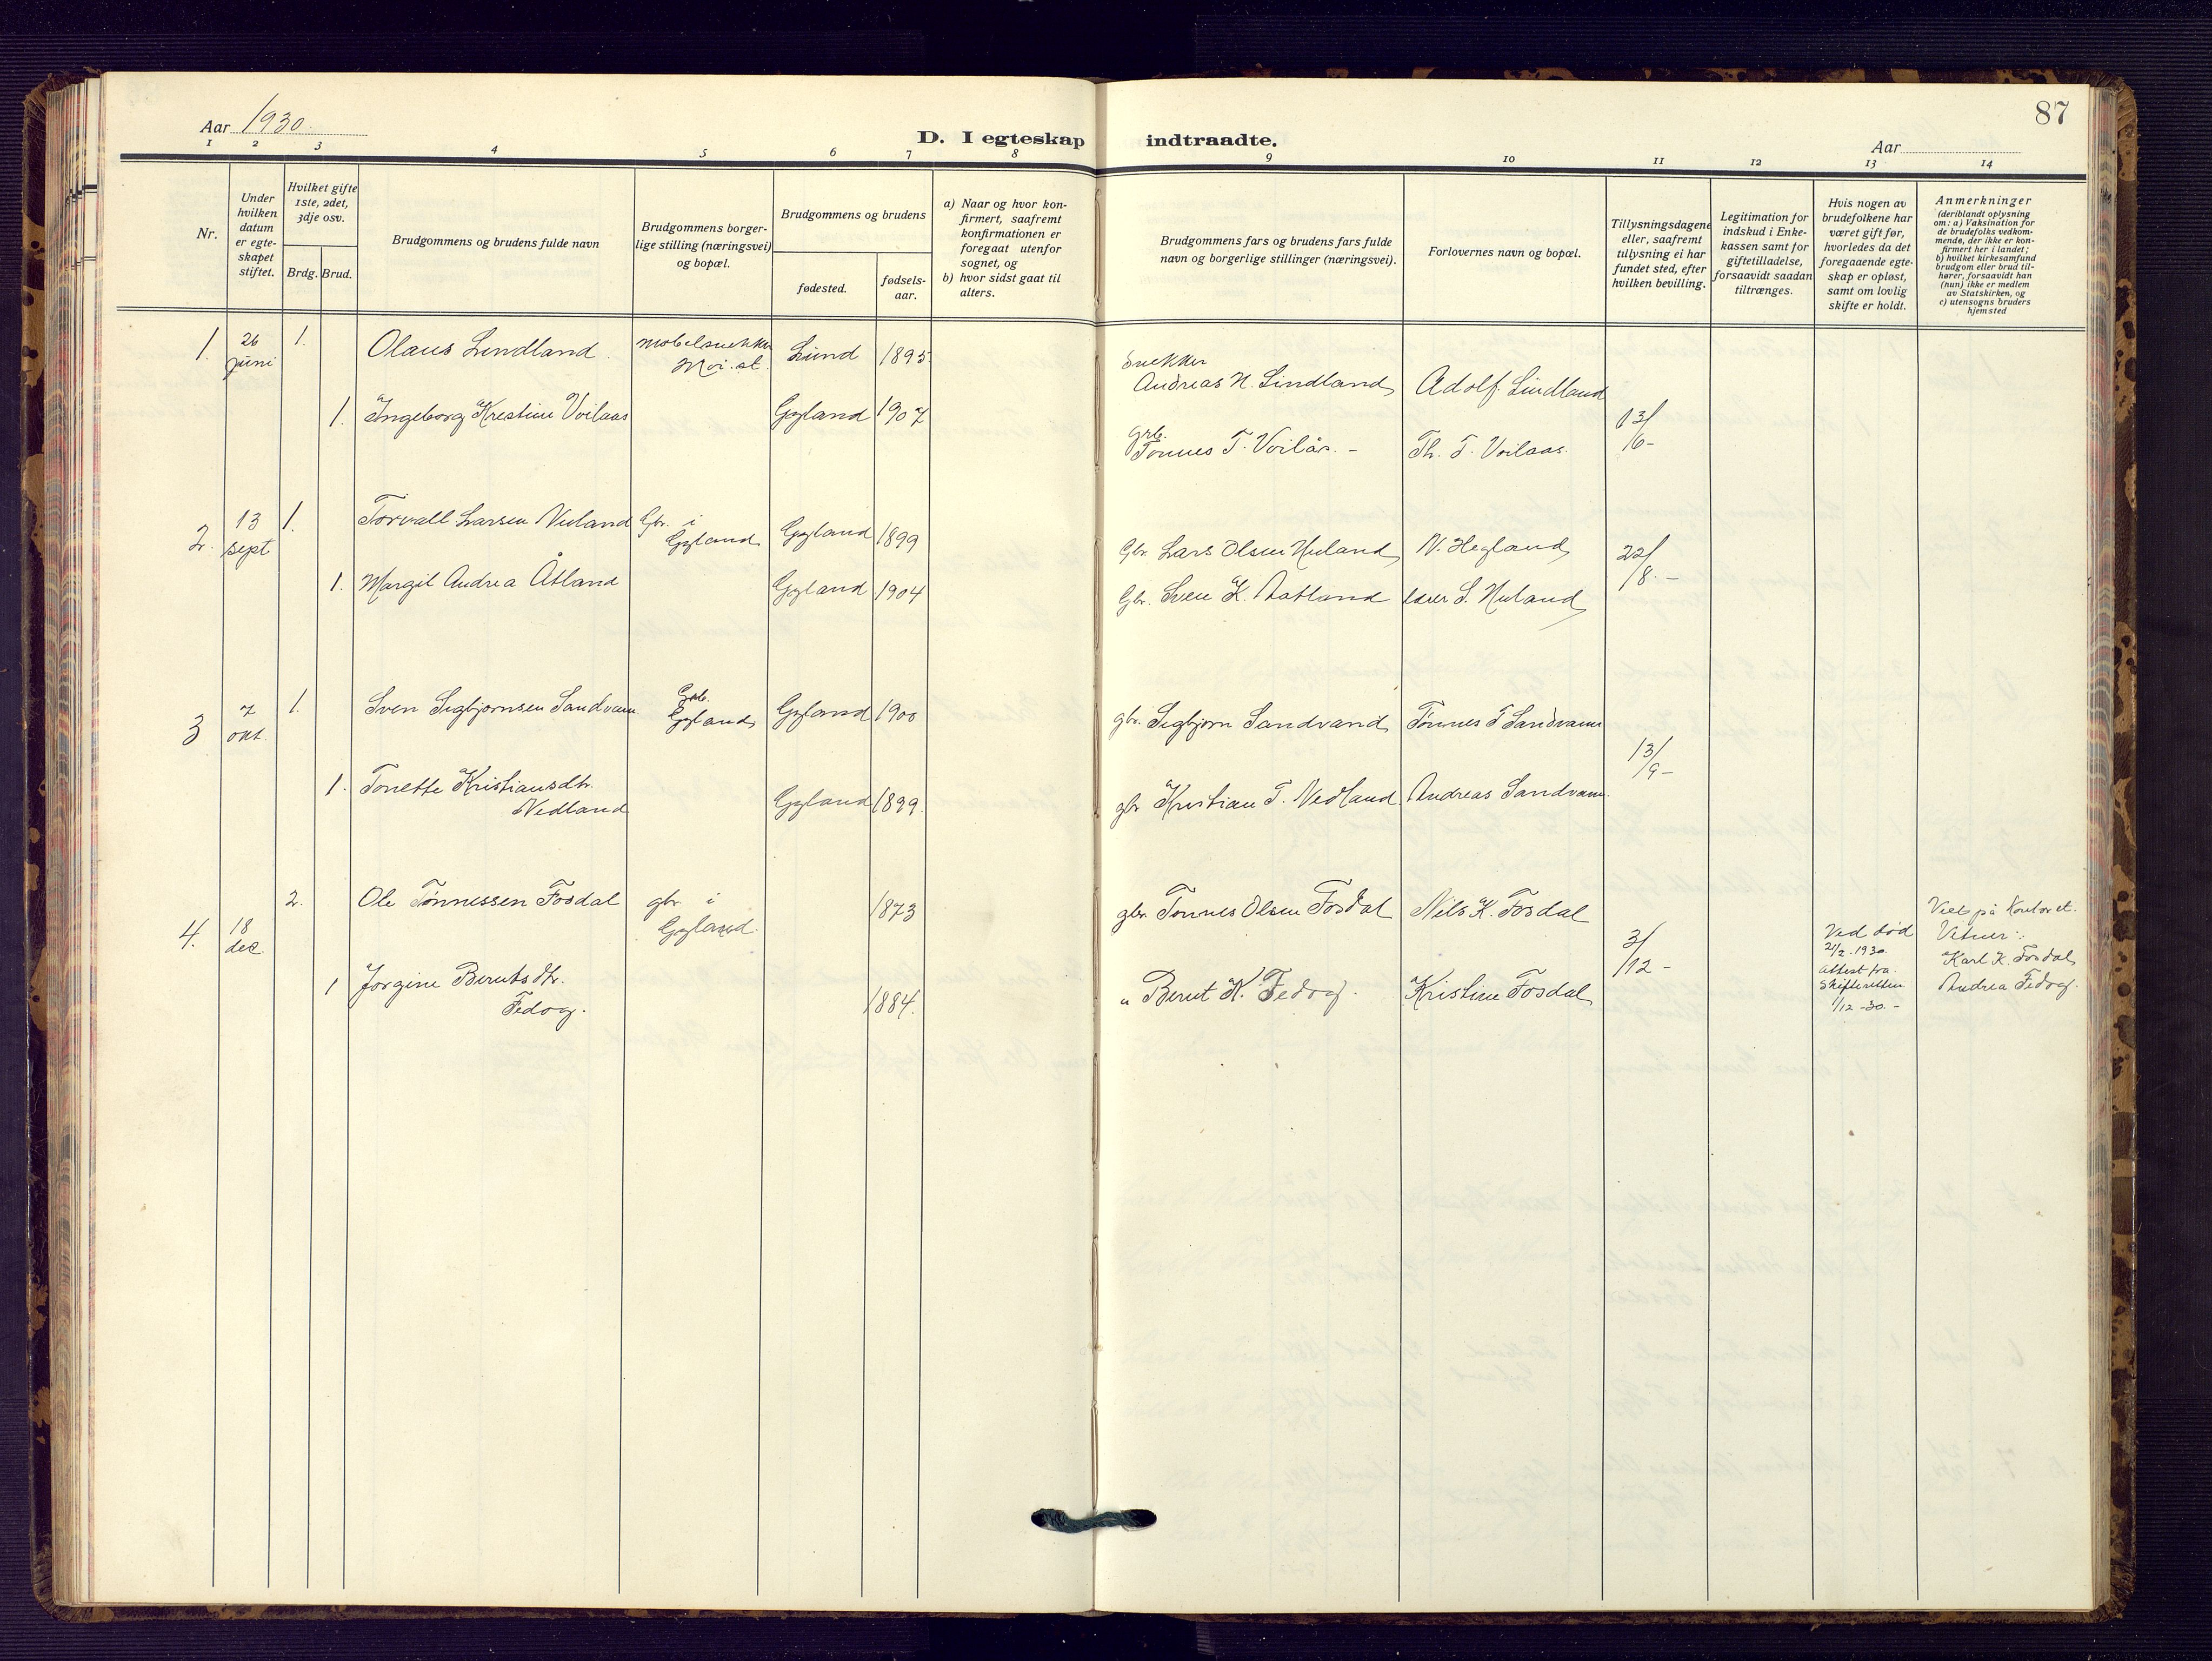 87
Aar 1930.
D. I egteskap indtraadte.
Aar
1 2 3 4 5 6 7 8 9 10 11 12 13 14
Nr.
Under hvilken datum er egte-skapet stiftet.
Hvilket gifte 1ste, 2det, 3dje osv.
Brdg. Brud.
Brudgommens og brudens fulde navn
Brudgommens borger-lige stilling (næringsvei) og bopæl.
Brudgommens og brudens
fødested.
fødsels-aar.
a) Naar og hvor kon-firmert, saafremt konfirmationen er foregaat utenfor sognet, og
b) hvor sidst gaat til alters.
Brudgommens fars og brudens fars fulde navn og borgerlige stillinger (næringsvei).
Forlovernes navn og bopæl.
Tillysningsdagene eller, saafremt tillysning ei har fundet sted, efter hvilken bevilling.
Legitimation for indskud i Enke-kassen samt for giftetilladelse, forsaavidt saadan tiltrænges.
Hvis nogen av brudefolkene har været gift før, hvorledes da det foregaaende egte-skap er opløst, samt om lovlig skifte er holdt.
Anmerkninger
(deriblandt oplysning om: a) Vaksination for de brudefolks vedkom-mende, der ikke er kon-firmert her i landet; b) hvilket kirkesamfund brudgom eller brud til-hører, forsaavidt han (hun) ikke er medlem av Statskirken, og c) utensogns bruders hjemsted
1. 26 juni 1. Olaus Lindland. møbelsnekker Moi. st. Lund 1895
Snekker Andreas N. Lindland Adolf Lindland
1. Ingeborg Krestine Voilaas Gyland 1907
Grb. Tønnes T. Voilås. - Th. T. Voilaas. 13/6-
2. 13 sept 1. Torvall Larsen Nuland Gbr. i Gyland Gyland 1899
Gbr. Lars Olsen Nuland N. Hegland 22/8.-
1. Margit Andrea Åtland Gyland 1904
Gbr. Sven K. Aatland lærer S. Nuland
3 7 okt. 1. Sven Sigbjørnsen Sandvann Grb. Gyland Gyland 1900
gbr. Sigbjørn Sandvand Tønnes T Sandvann
13/9-
1. Tonette Kristiansdtr. Nedland Gyland 1899.
gbr Kristian T. Nedland Andreas Sandvann
4. 18 dec. 2. Ole Tønnessen Fosdal gbr i Gyland. 1873
gbr. Tønnes Olsen Fosdal Nils K. Fosdal
3/12-
Ved død 21/2. 1930. Attest fra Skifteretten 1/12-30.-
Viet på Kontoret. Vitner: Karl K. Fosdal Andrea Fedog.
1 Jørgine Berntsdtr. Fedog. 1884.
" Bernt K. Fedog. Kristine Fosdal